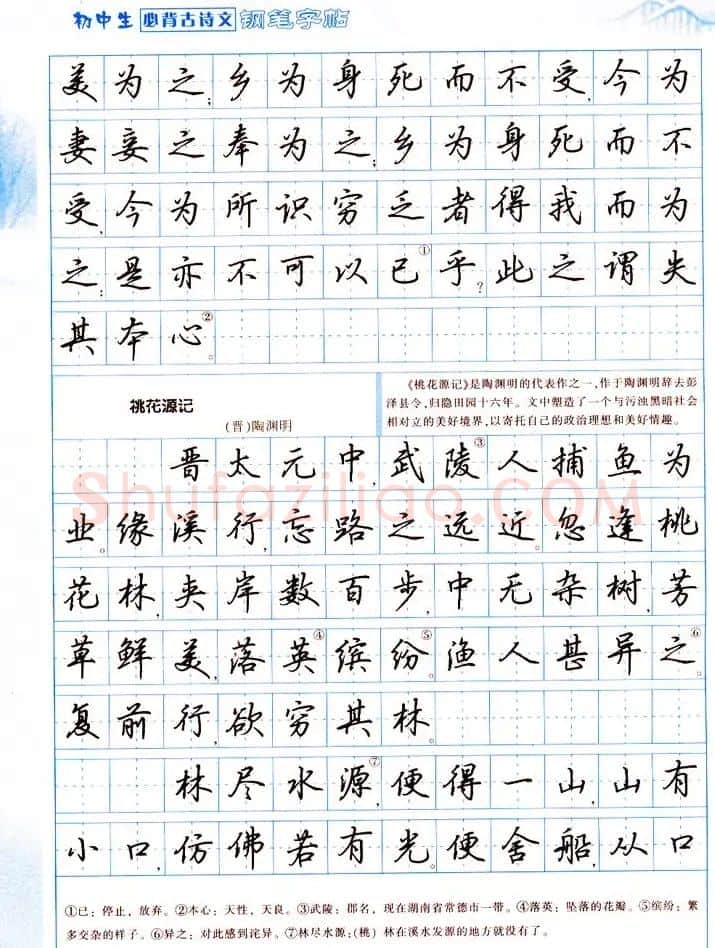 初中生 必背古诗文 钢笔字帖
美为之;乡为身死而不受,今为
妻妾之奉为之;乡为身死而不
受,今为所识穷乏者得我而为
之:是亦不可以已①乎?此之谓失
其本心②。
桃花源记
(晋)陶渊明
《桃花源记》是陶渊明的代表作之一,作于陶渊明辞去彭
泽县令,归隐田园十六年。文中塑造了一个与污浊黑暗社会
相对立的美好境界,以寄托自己的政治理想和美好情趣。
晋太元中,武陵③人捕鱼为
业。缘溪行,忘路之远近。忽逢桃
花林,夹岸数百步,中无杂树,芳
草鲜美,落英④缤纷⑤。渔人甚异之⑥。
复前行,欲穷其林。
林尽水源⑦,便得一山,山有
小口,仿佛若有光。便舍船,从口
①已:停止,放弃。②本心:天性,天良。③武陵:郡名,现在湖南省常德市一带。④落英:坠落的花瓣。⑤缤纷:繁
多交杂的样子。⑥异之:对此感到诧异。⑦林尽水源:(桃)林在溪水发源的地方就没有了。
Shufaziliao.COM